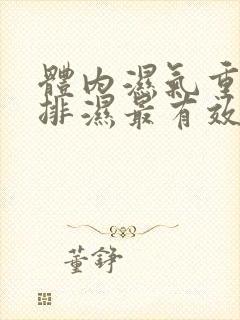 體內濕氣重
排濕最有效
董錚